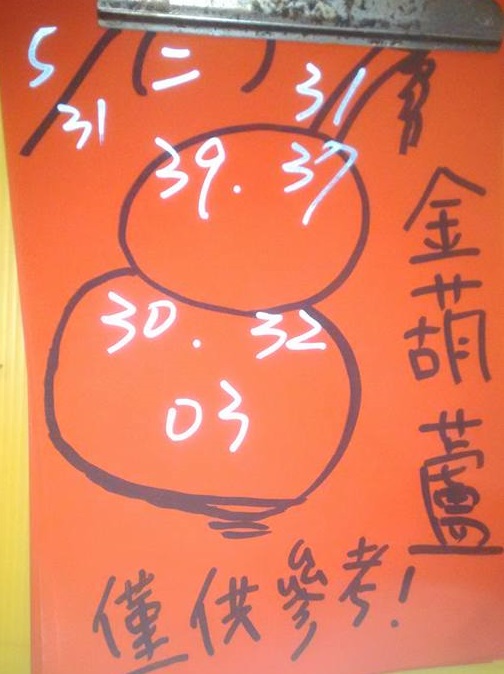 5/31 (二) 31
39. 37
30. 32
03
金葫蘆
僅供參考!